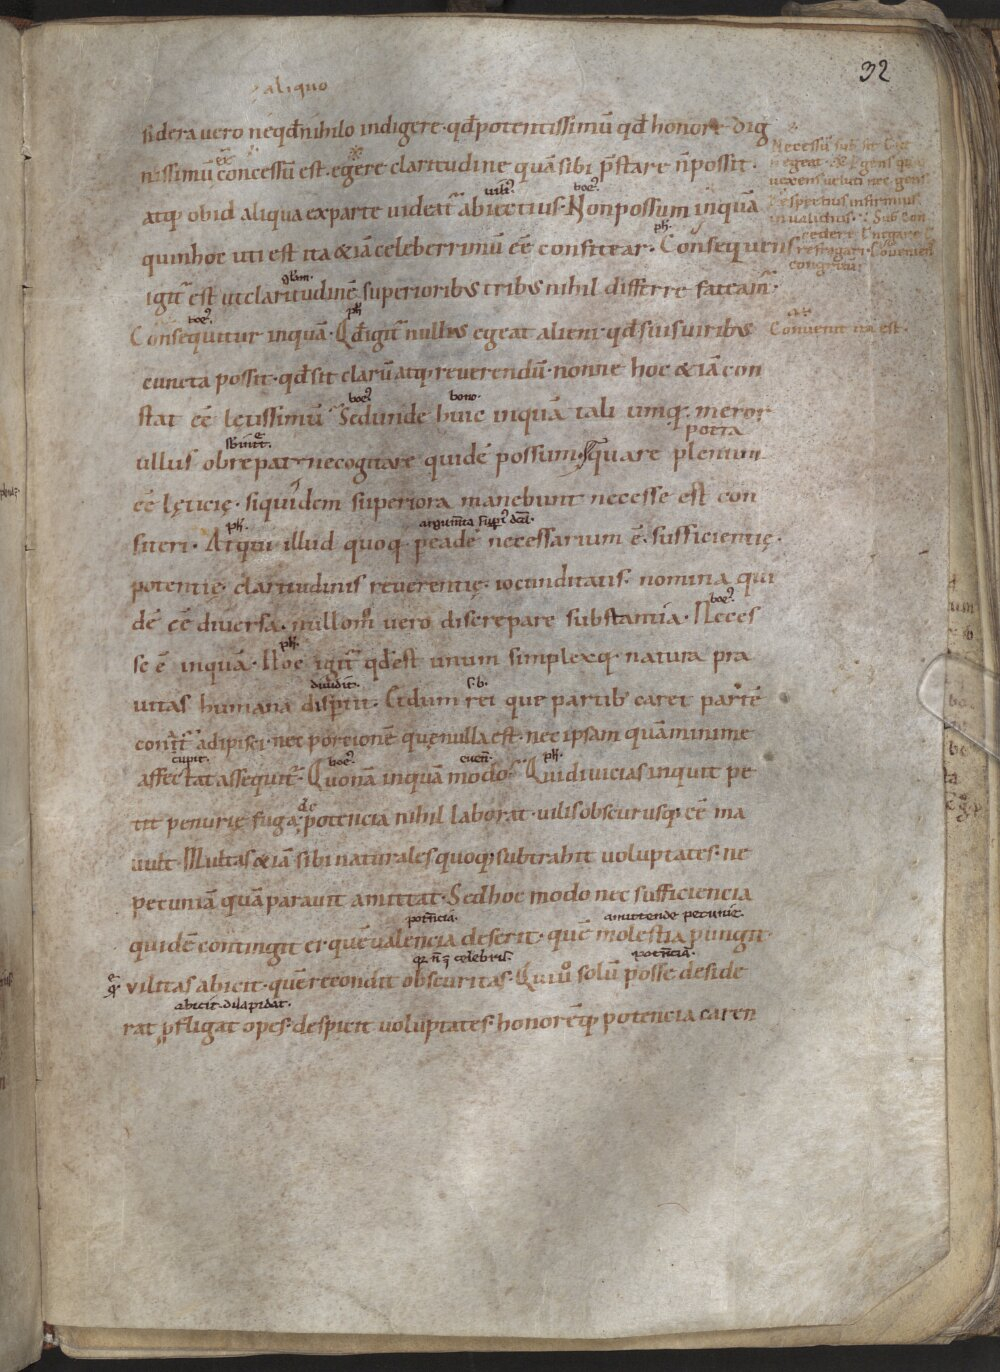 32
aliquo
sidera vero neqđ nihilo indigere · qđ potentissimū qđ honore dig
nissimū concessū est · egere claritudine quā sibi p̄stare n̄ possit ·
vilior boe᷒
atq; ob id aliqua ex parte videat᷑ abiectius · Non possum inquā
ph̄
quin hoc uti est ita & iā celeberrimū eē confitear · Consequens
igit᷑ est ut claritudinē superioribus tribus nihil differre fateam᷑ ·
boe᷒ ph̄
Consequitur inquā · Qđ igit᷑ nullius egeat alieni · qđ suis viribus
Convenit
cuncta possit · qđ sit clarū atq; reverendū · nonne hoc & iā con
boe᷒ bono·
stat eē lętissimū · Sed unde huic inquā tali umq; meror
ullus obrepat necogitare quidē possum · quare plenum
eē lęticię · siquidem superiora manebunt necesse est con
ph̄· argum̄ta
fiteri · Atqui illud quoq; p eadē necessarium ē · sufficientię ·
potentię · claritudinis reverentię · iocunditatis · nomina qui
boe᷒
dē eē diversa · nullom̊ vero discrepare substantia · Neces
ph̄·
se ē inquā · Hoc igit᷑ qđ est unum simplexq; natura pra
dividit·
vitas humana disp̄tit · Et dum rei que partib; caret partē
conat᷑ adipisci · nec porcionē quę nulla est · nec ipsam quā minime
cupit· boe᷒ ph̄·
affectat assequit᷑ · Quonā inquā modo · Qui divicias inquit pe
de
tit penurię fuga · potencia nihil laborat · vilis obscurusq; eē ma
vult · Multas & iā sibi naturales quoq; subtrahit voluptates · ne
pecuniā quā paravit amittat · Sed hoc modo nec sufficiencia
amittende pecunię·
quidē contingit ei quē valencia deserit · quē molestia pungit ·
celebris· potencia·
vilitas abicit · quē recondit obscuritas · Qui ů solū posse deside
abicit · dilapidat·
rat p̄fligat opes · despicit voluptates · honorēq; potencia caren